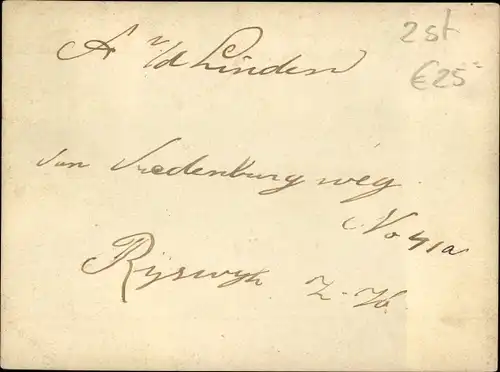 2 st
€ 25 =
A v/d Linden
van Vredenburgweg
No 41a
Rijswijk Z.-H.